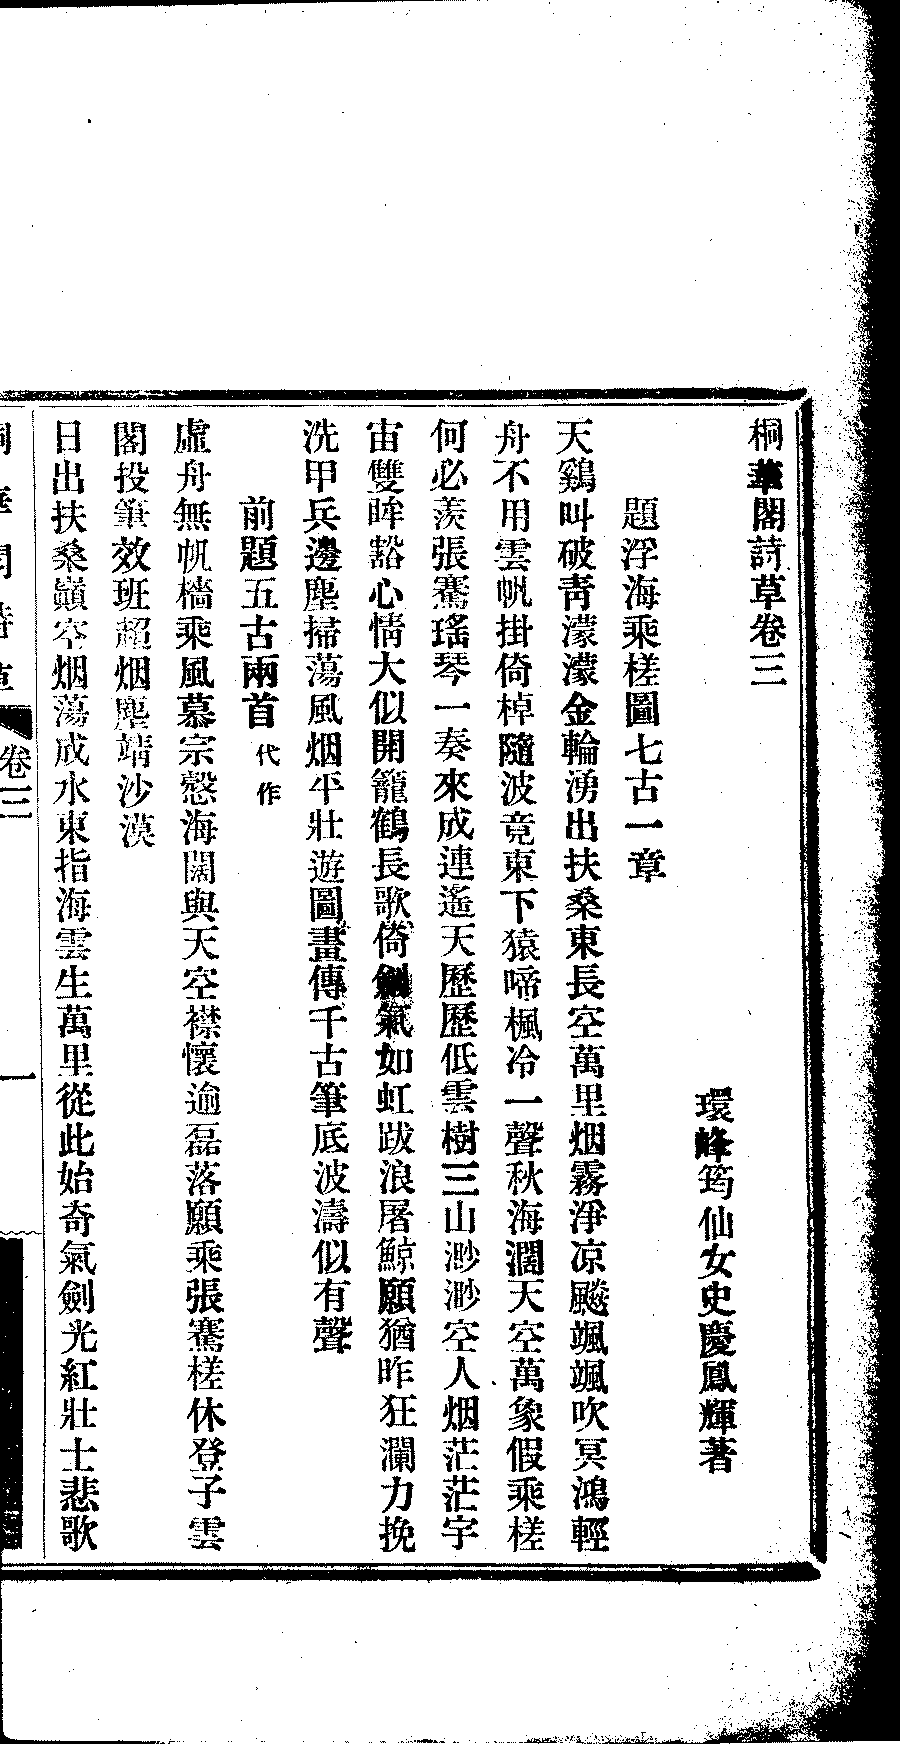 桐華閣詩草卷三
環峰筠仙女史慶鳳輝著
題浮海乘槎圖七古一章
天鷄叫破靑濛濛金輪湧出扶桑東長空萬里烟霧淨凉颸颯颯吹冥鴻輕
舟不用雲帆掛倚棹隨波竟東下猿啼楓冷一聲秋海濶天空萬象假乘槎
何必羨張騫瑤琴一奏來成連遙天歷歷低雲樹三山渺渺空人烟茫茫宇
宙雙眸豁心情大似開籠鶴長歌倚劍氣如虹跋浪屠鯨願猶昨狂瀾力挽
洗甲兵邊塵掃蕩風烟平壯遊圖畫傳千古筆底波濤似有聲
前題五古兩首代作
虛舟無帆檣乘風慕宗慤海闊與天空襟懷逾磊落願乘張騫槎休登子雲
閣投筆效班超烟塵靖沙漠
日出扶桑巔空烟蕩成水東指海雲生萬里從此始奇氣劍光紅壯士悲歌
桐華閣詩草
卷三
一